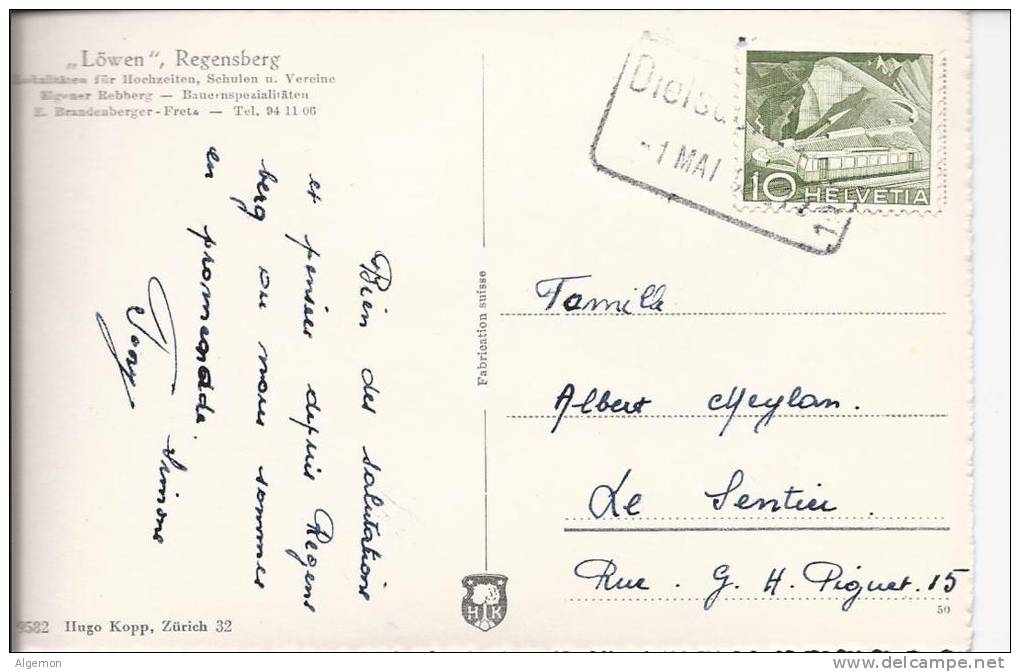 „Löwen", Regensberg
Lokalitäten für Hochzeiten, Schulen u. Vereine
Eigener Rebberg — Bauernspezialitäten
E. Brandenberger-Fretz — Tel. 94 11 06
Bien des salutations
et pensées depuis Regens
berg ou nous sommes
en promenade.
Tony Simone
Fabrication suisse
Diels
-1 MAI
10 HELVETIA
Famille
Albert Meylan.
Le Sentier.
Rue. G. H. Piguet. 15
50
HK
9582 Hugo Kopp, Zürich 32
Algemon
delcampe.net